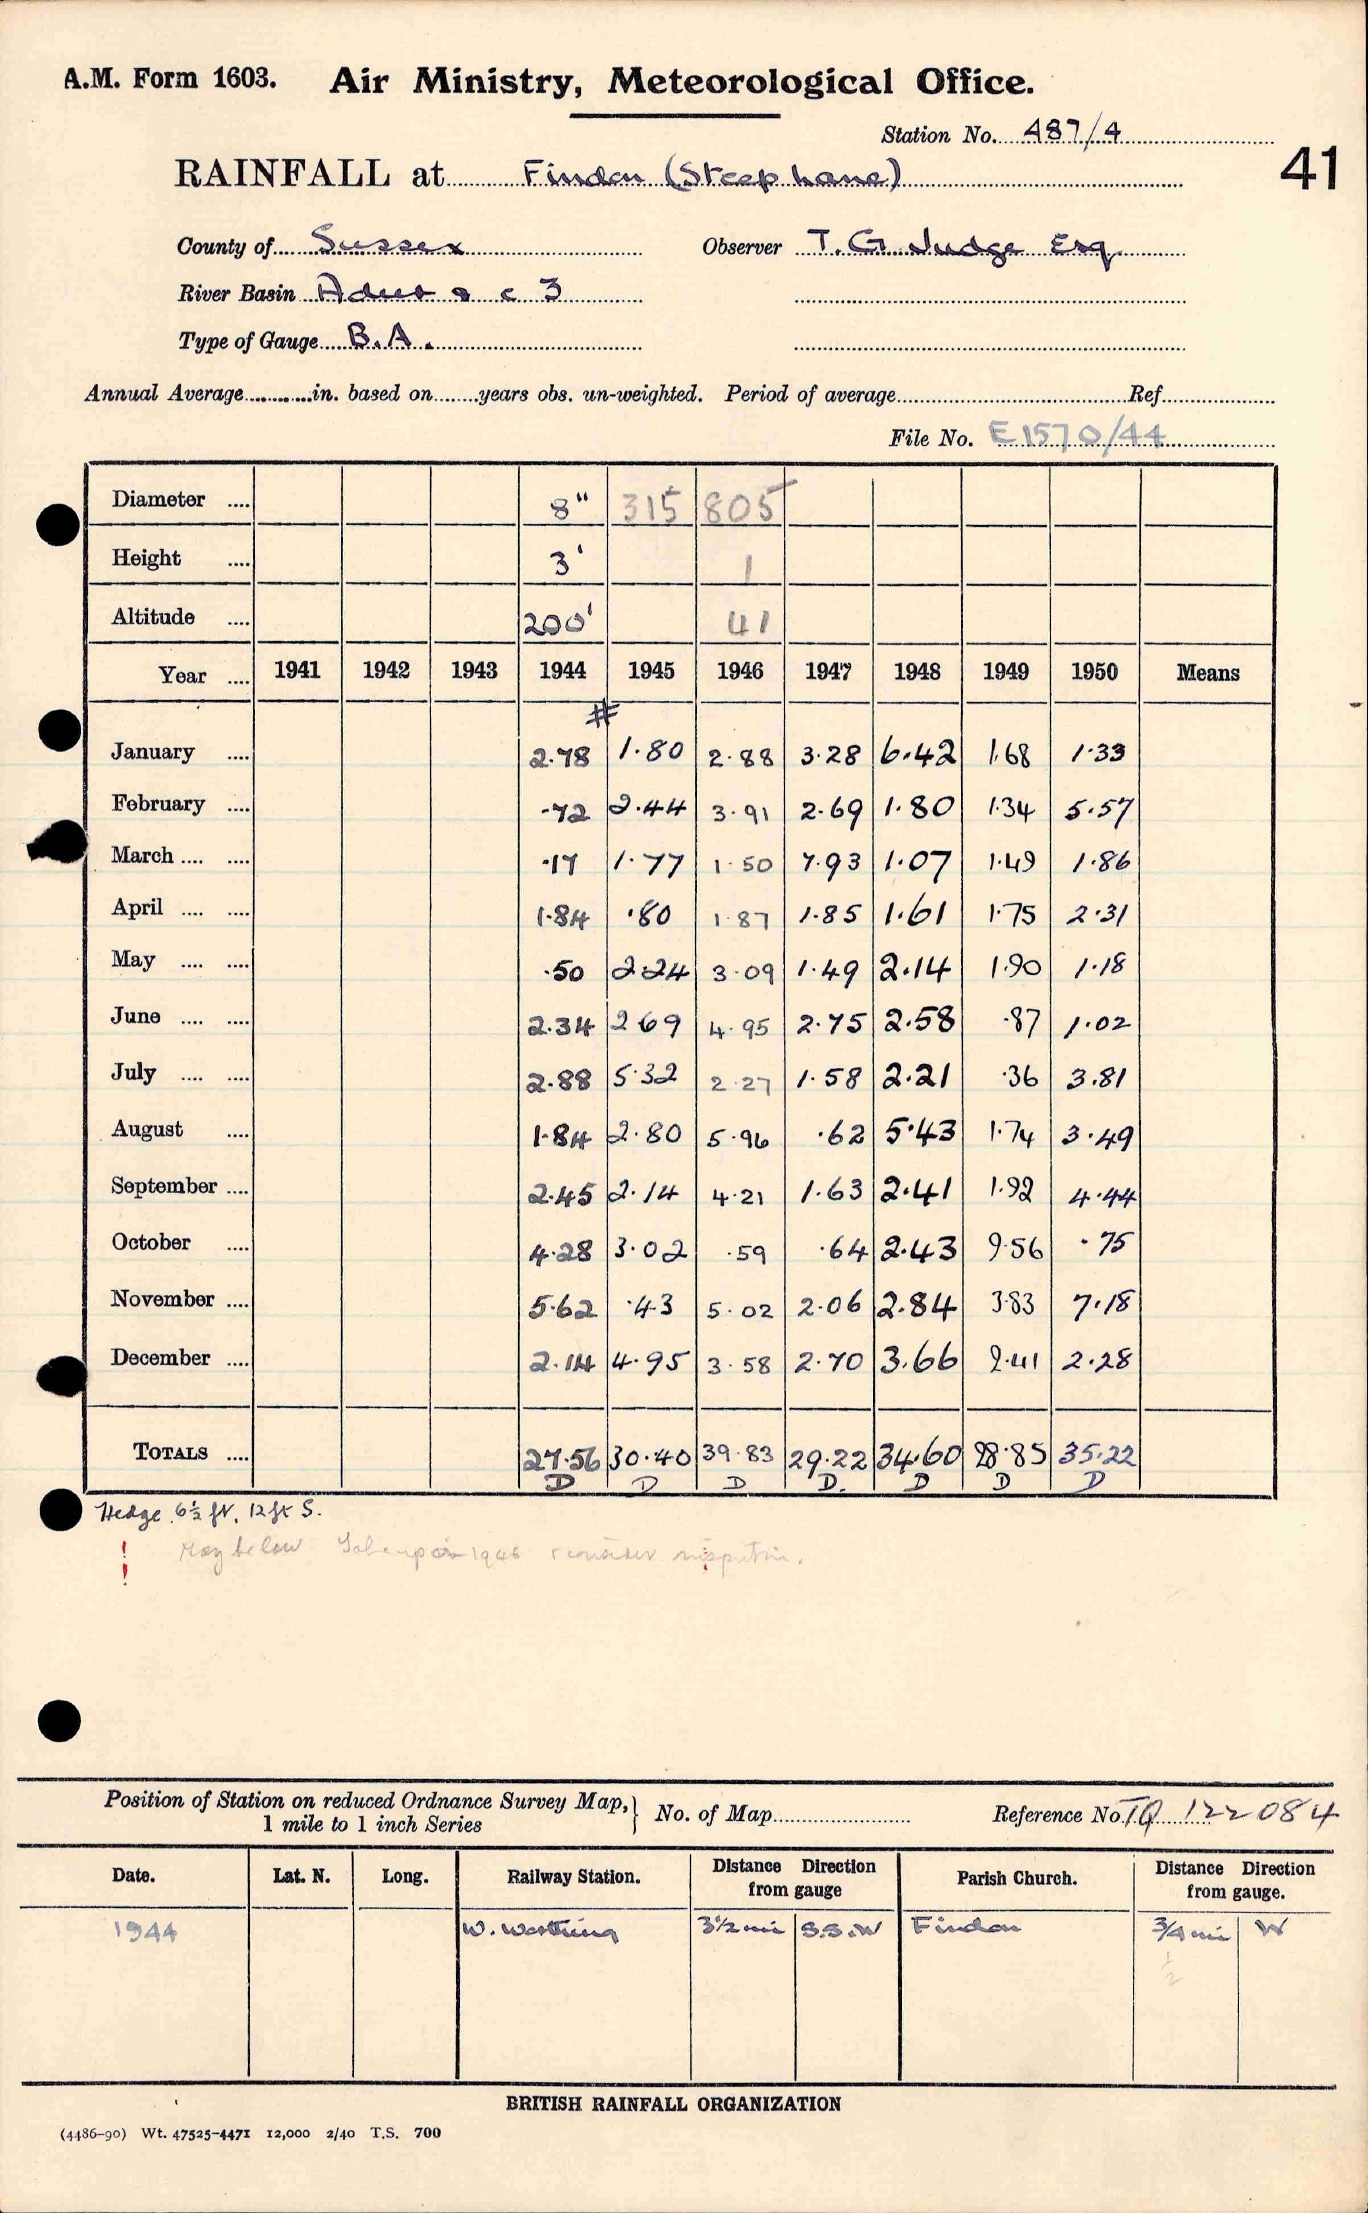 A.M. Form 1603. Air Ministry, Meteorological Office.
Station No. 487/4
41
RAINFALL at Findon (Steep Lane)
County of Sussex Observer T. G. Judge Esq.
River Basin Adur c 3
Type of Gauge B.A.
Annual Average in. based on years obs. un-weighted. Period of average Ref.
File No. E1570/44
Diameter 8" 315 805
Height 3' 1
Altitude 200' 41
Year 1941 1942 1943 1944 1945 1946 1947 1948 1949 1950 Means
#
January 2.78 1.80 2.88 3.28 6.42 1.68 1.33
February .72 2.44 3.91 2.69 1.80 1.34 5.57
March .17 1.77 1.50 7.93 1.07 1.49 1.86
April 1.84 .80 1.87 1.85 1.61 1.75 2.31
May .50 2.24 3.09 1.49 2.14 1.90 1.18
June 2.34 2 69 4.95 2.75 2.58 .87 1.02
July 2.88 5.32 2.27 1.58 2.21 .36 3.81
August 1.84 2.80 5.96 .62 5.43 1.74 3.49
September 2.45 2.14 4.21 1.63 2.41 1.92 4.44
October 4.28 3.02 .59 .64 2.43 9.56 .75
November 5.62 .43 5.02 2.06 2.84 3.83 7.18
December 2.14 4.95 3.58 2.70 3.66 2.41 2.28
TOTALS 27.56 30.40 39.83 29.22 34.60 28.85 35.22
D D D D. D D D
Hedge 6½ ft, 12 ft S.
! May below 1946
!
Position of Station on reduced Ordnance Survey Map, 1 mile to 1 inch Series } No. of Map Reference No. TQ 122084
Date. Lat. N. Long. Railway Station. Distance Direction from gauge Parish Church. Distance Direction from gauge.
1944 W. Worthing 3½ mi S.S.W Findon ¾ mi W
½
BRITISH RAINFALL ORGANIZATION
(4486-90) Wt. 47525-4471 12,000 2/40 T.S. 700